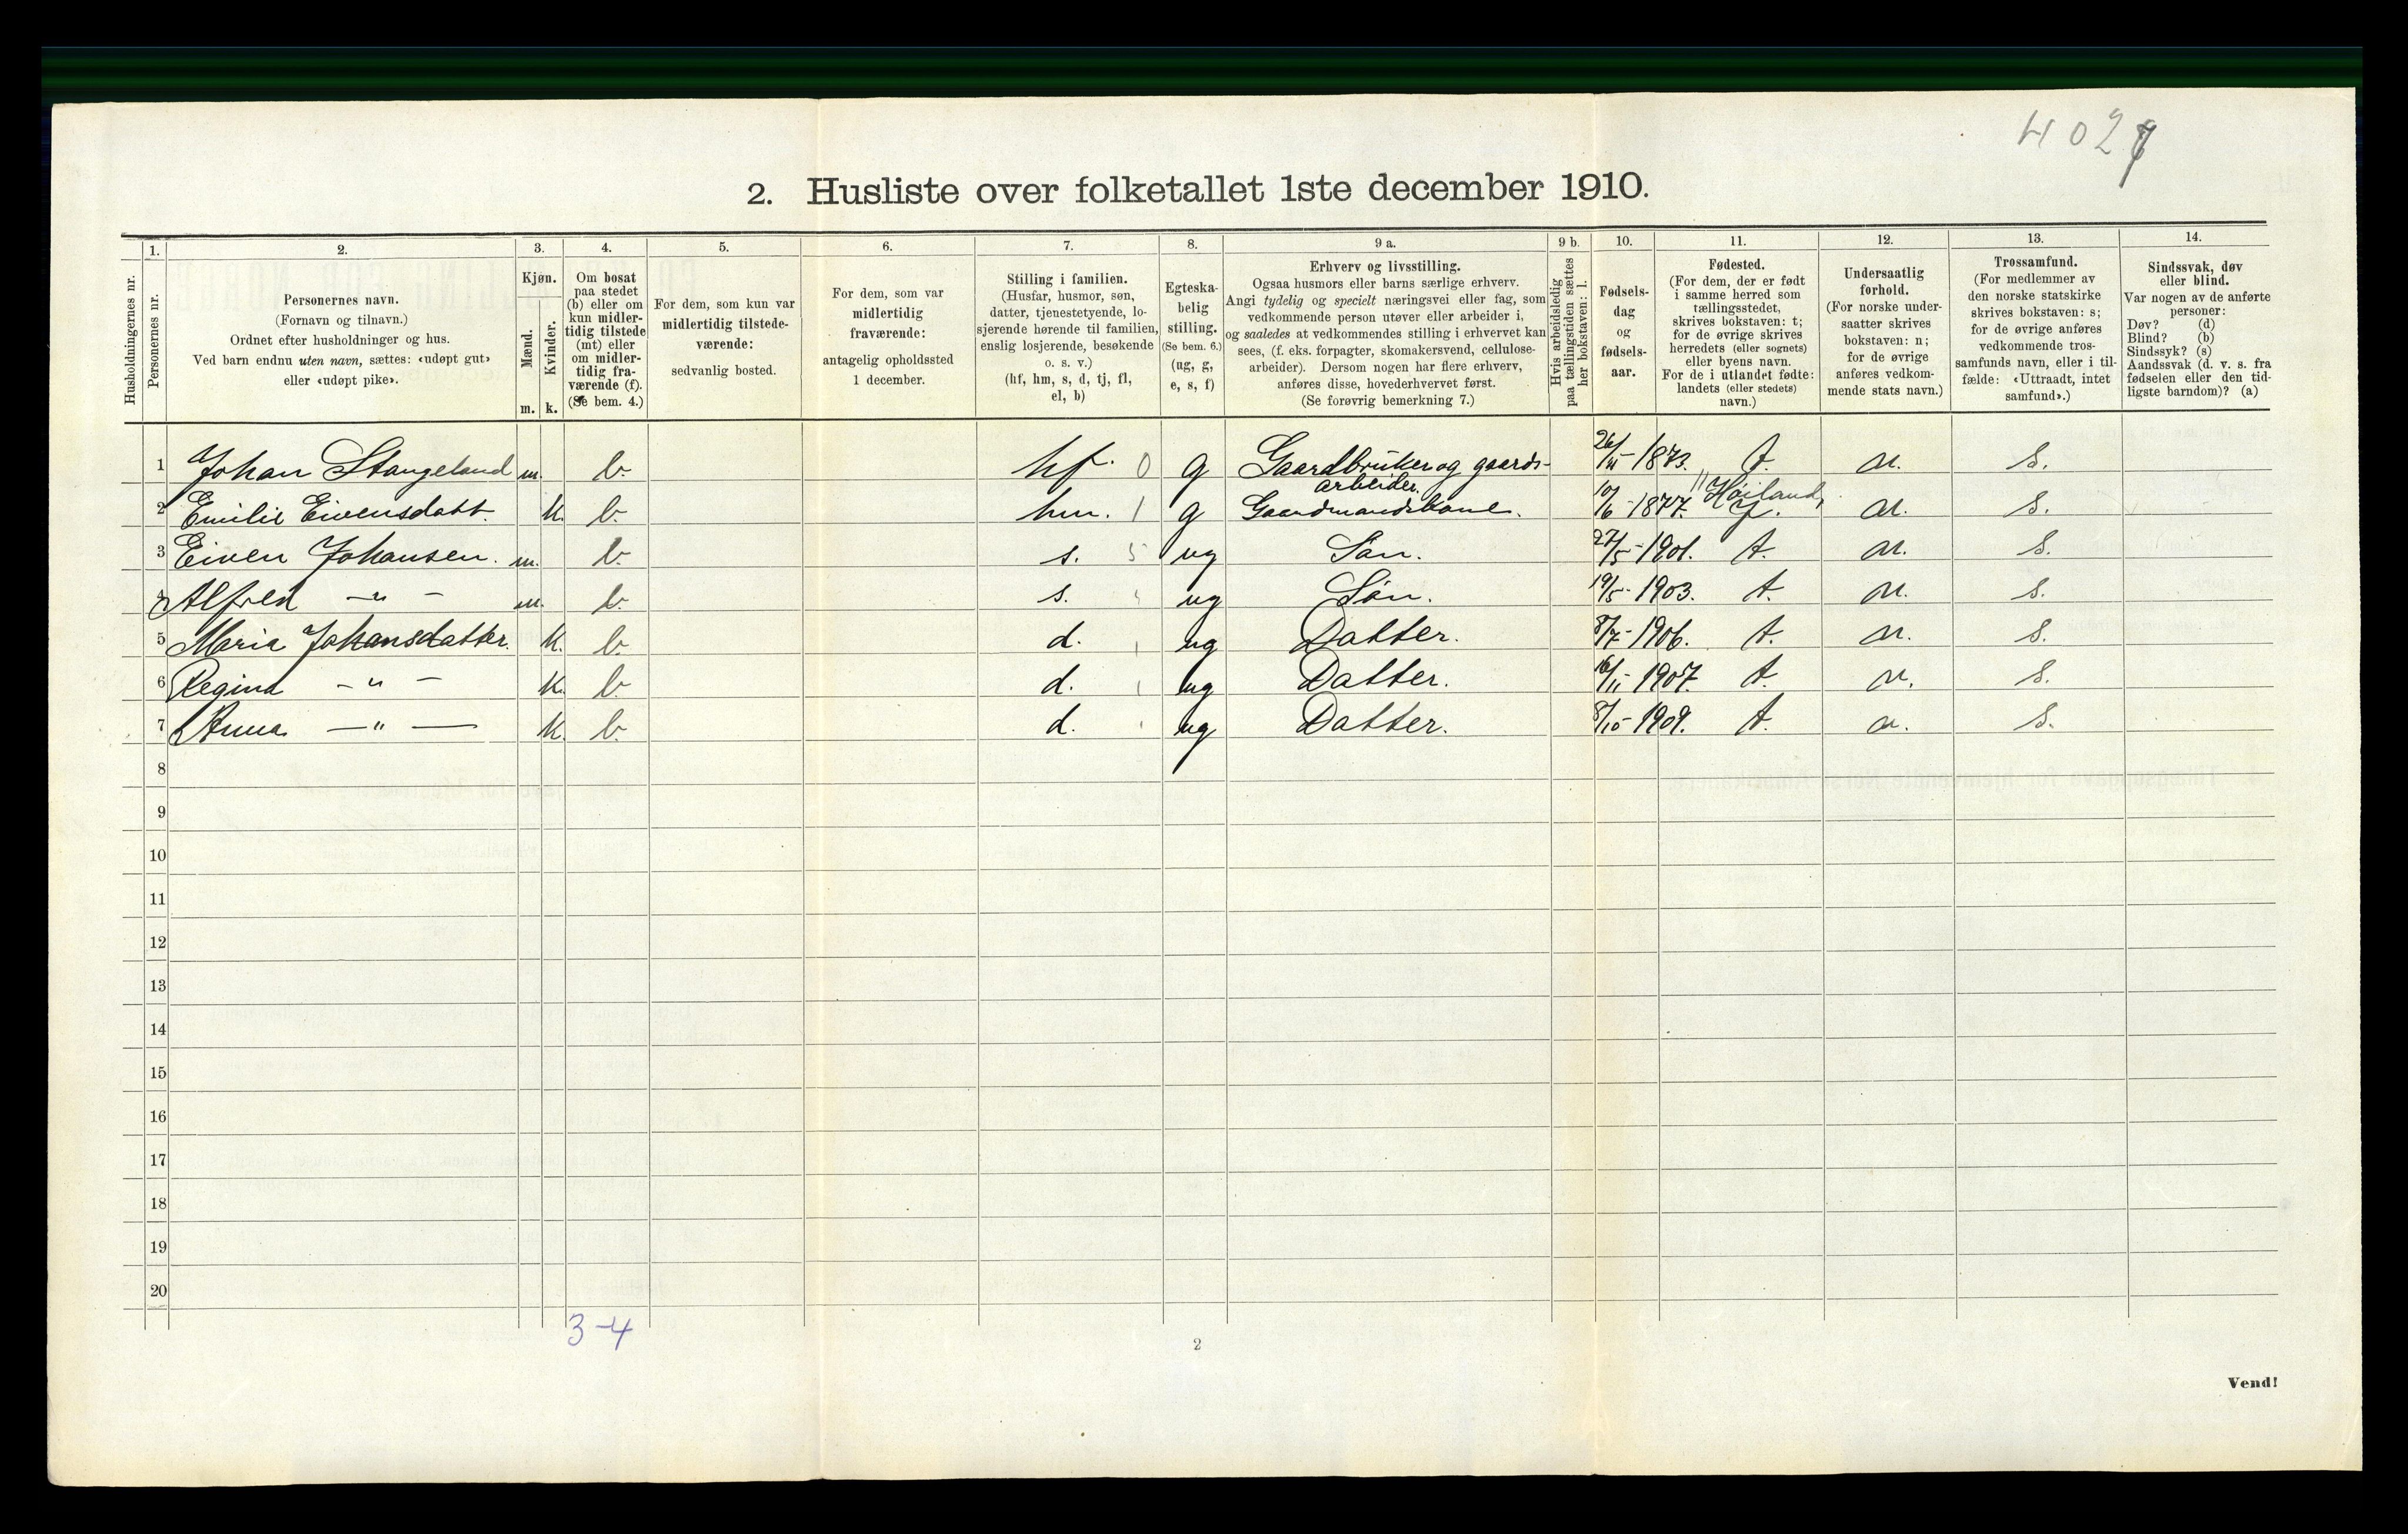 402
2. Husliste over folketallet 1ste december 1910.
1. 2. 3. 4. 5. 6. 7. 8. 9 a. 9 b. 10. 11. 12. 13. 14.
Husholdningernes nr.
Personernes nr.
Personernes navn.
(Fornavn og tilnavn.)
Ordnet efter husholdninger og hus.
Ved barn endnu uten navn, sættes: «udøpt gut»
eller «udøpt pike».
Kjøn.
Mænd.
Kvinder.
m. k.
Om bosat
paa stedet
(b) eller om
kun midler-
tidig tilstede
(mt) eller
om midler-
tidig fra-
værende (f).
(Se bem. 4.)
For dem, som kun var
midlertidig tilstede-
værende:
sedvanlig bosted.
For dem, som var
midlertidig
fraværende:
antagelig opholdssted
1 december.
Stilling i familien.
(Husfar, husmor, søn,
datter, tjenestetyende, lo-
sjerende hørende til familien,
enslig losjerende, besøkende
o. s. v.)
(hf, hm, s, d, tj, fl,
el, b)
Egteska-
belig
stilling.
(Se bem. 6.)
(ug, g,
e, s, f)
Erhverv og livsstilling.
Ogsaa husmors eller barns særlige erhverv.
Angi tydelig og specielt næringsvei eller fag, som
vedkommende person utøver eller arbeider i,
og saaledes at vedkommendes stilling i erhvervet kan
sees, (f. eks. forpagter, skomakersvend, cellulose-
arbeider). Dersom nogen har flere erhverv,
anføres disse, hovederhvervet først.
(Se forøvrig bemerkning 7.)
Hvis arbeidsledig
paa tællingstiden sættes
her bokstaven: l.
Fødsels-
dag
og
fødsels-
aar.
Fødested.
(For dem, der er født
i samme herred som
tællingsstedet,
skrives bokstaven: t;
for de øvrige skrives
herredets (eller sognets)
eller byens navn.
For de i utlandet fødte:
landets (eller stedets)
navn.)
Undersaatlig
forhold.
(For norske under-
saatter skrives
bokstaven: n;
for de øvrige
anføres vedkom-
mende stats navn.)
Trossamfund.
(For medlemmer av
den norske statskirke
skrives bokstaven: s;
for de øvrige anføres
vedkommende tros-
samfunds navn, eller i til-
fælde: «Uttraadt, intet
samfund».)
Sindssvak, døv
eller blind.
Var nogen av de anførte
personer:
Døv? (d)
Blind? (b)
Sindssyk? (s)
Aandssvak (d. v. s. fra
fødselen eller den tid-
ligste barndom)? (a)
1 Johan Stangeland m. b. hf. 0 g Gaardbruker og gaards- 1873. t. n. s.
arbeider.
2 Emilie Eivensdatt. k. b. hm. 1 g Gaardmandskone. 10/6 - 1877. Høiland, n. s.
3 Eiven Johansen. m. b. s. 5 ug Søn. 27/5 - 1901. t. n. s.
4 Alfred - " - m. b. s. ug Søn. 19/5 - 1903. t. n. s.
5 Maria Johansdatter. k. b. d. ug Datter. 8/7 - 1906. t. n. s.
6 Regina - " - k. b. d. ug Datter. 16/11 1907. t. n. s.
7 Anna - " - k. b. d. ug Datter. 8/10 - 1909. t. n. s.
8
9
10
11
12
13
14
15
16
17
18
19
20
3-4
2
Vend!